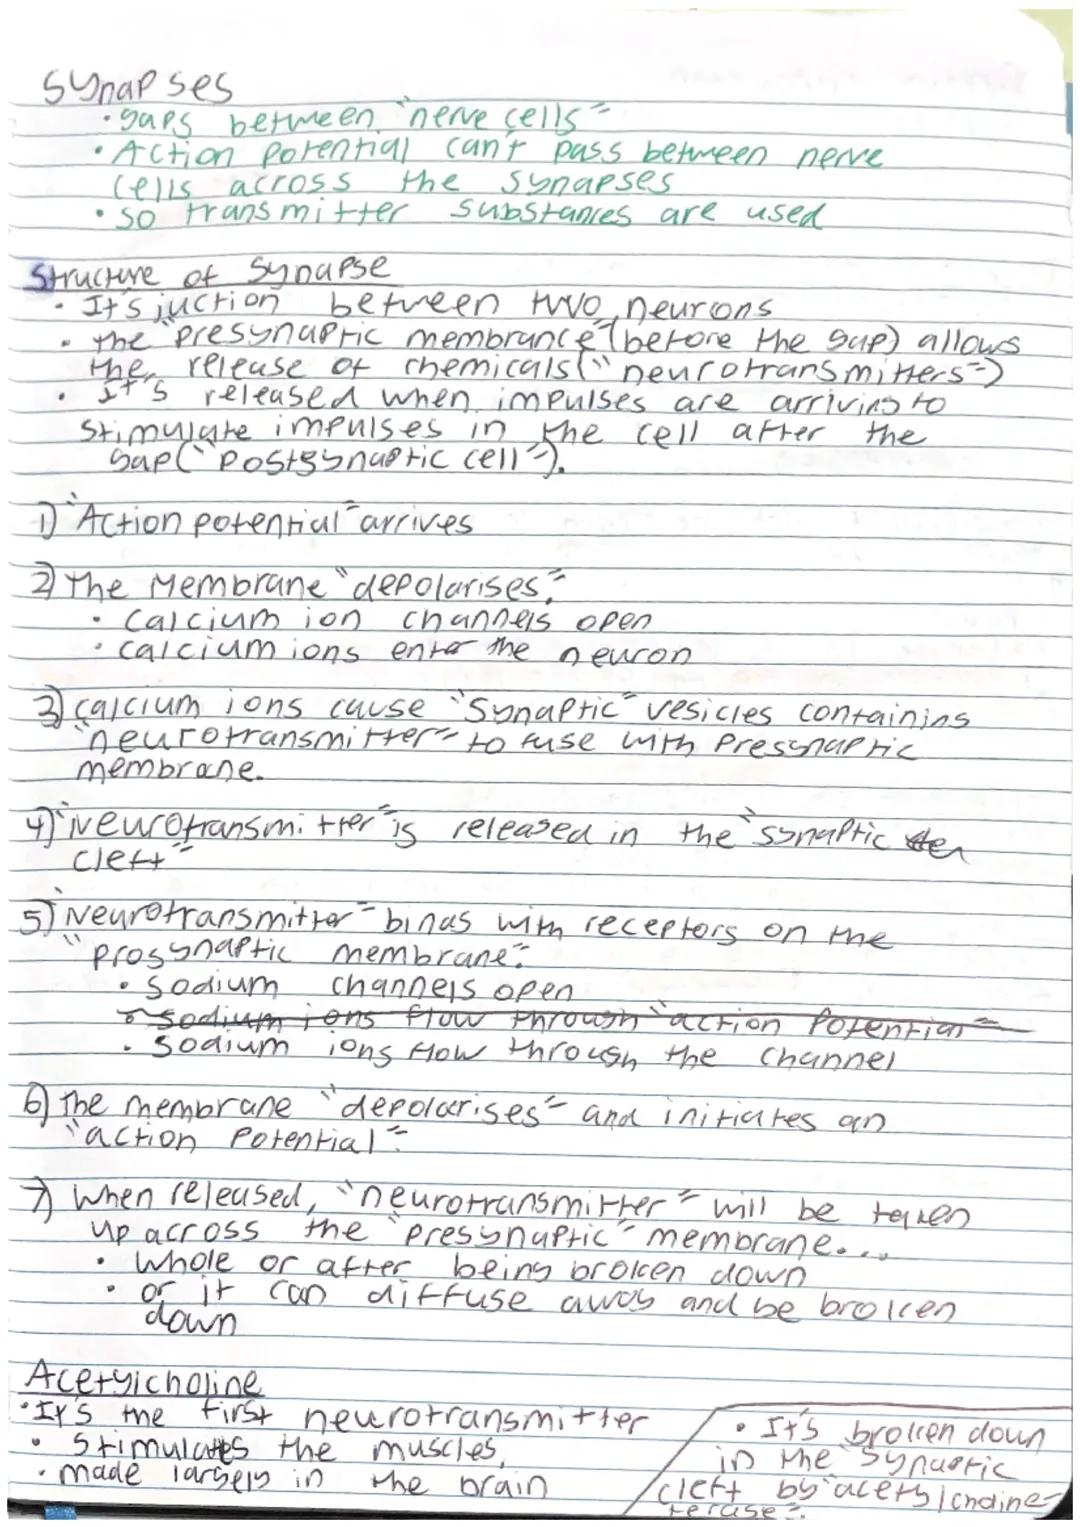 Synapses
• gaps between "nerve cells"
• Action potential can't pass between nerve
cells across the synapses
• so transmitter substances are used
Structure of Synapse
• It's juction between two neurons
• the "presynaptic membrance" (before the gap) allows
the release of chemicals ("neurotransmitters")
• It's released when impulses are arriving to
stimulate impulses in the cell after the
gap ("postsynaptic cell").
1) "Action potential" arrives
2) The Membrane "depolarises"
• Calcium ion channels open
• calcium ions enter the neuron
3) calcium ions cause "Synaptic" vesicles containing
"neurotransmitter" to fuse with Presynaptic
membrane.
4) "Neurotransmitter" is released in the "synaptic
cleft"
5) "Neurotransmitter" binds with receptors on the
"prossynaptic membrane"
• Sodium channels open
• sodium ions flow through "action Potential"
• Sodium ions flow through the channel
6) The membrane "depolarises" and initiates an
"action Potential"
7) When released, "neurotransmitter" will be taken
up across the "presynaptic" membrane....
• Whole or after being broken down
• or it can diffuse away and be broken
down
Acetylcholine
• It's the first neurotransmitter
• Stimulates the muscles,
• made largely in the brain
• It's broken down
in the "Synaptic
cleft by "acetylcholine-
terase"